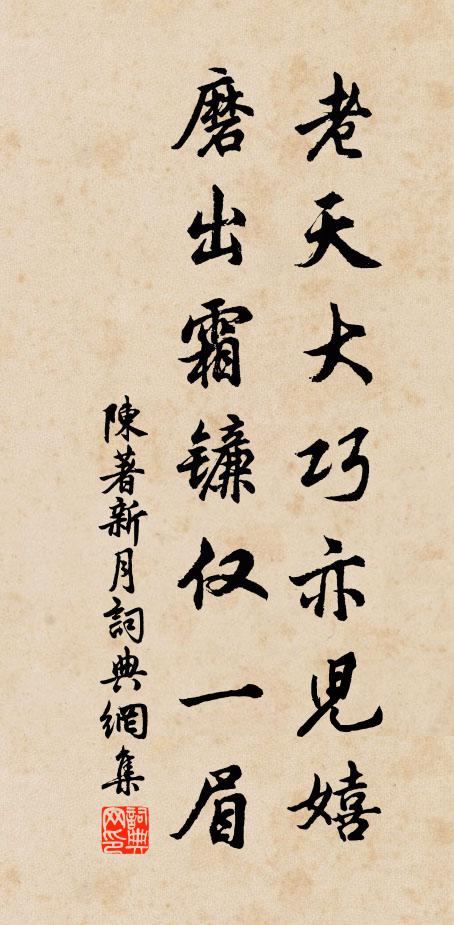 老天大巧亦児嬉
磨出霜镰仅一眉
陳著新月詞典網集
詞典网印